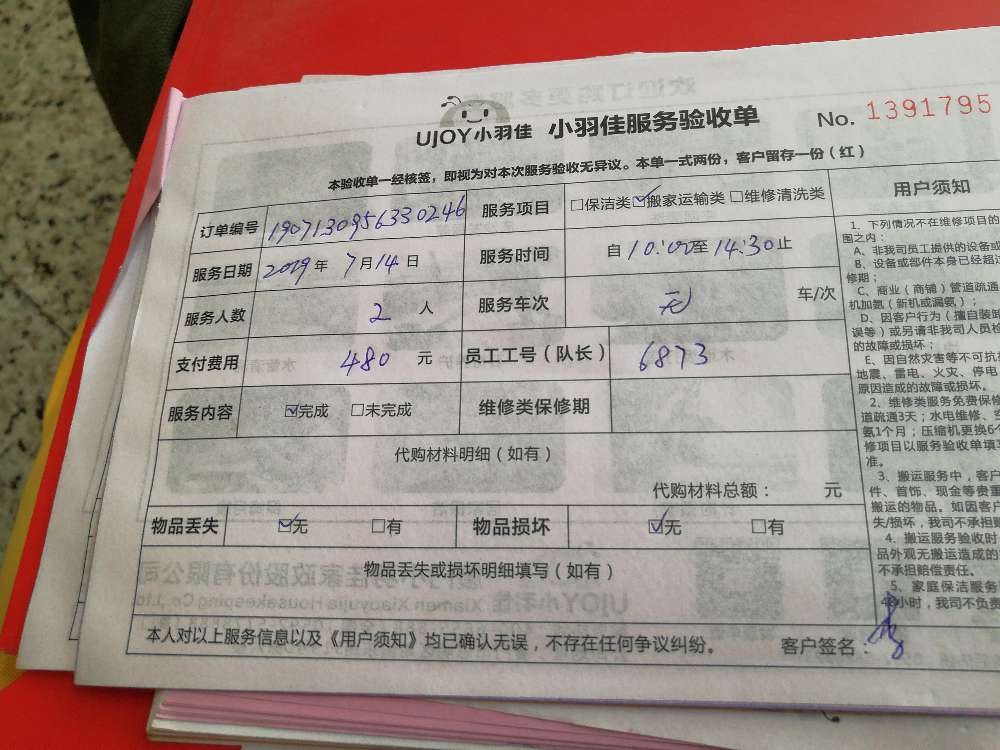 UJOY小羽佳 小羽佳服务验收单 No. 1391795
本验收单一经核签，即视为对本次服务验收无异议。本单一式两份，客户留存一份（红）
订单编号 1907130956330246 服务项目 □保洁类☑搬家运输类□维修清洗类
服务日期 2019年 7月14日 服务时间 自10:00至14:30止
服务人数 2 人 服务车次 无 车/次
支付费用 480 元 员工工号（队长） 6873
服务内容 ☑完成 □未完成 维修类保修期
代购材料明细（如有）
代购材料总额： 元
物品丢失 ☑无 □有 物品损坏 ☑无 □有
物品丢失或损坏明细填写（如有）
本人对以上服务信息以及《用户须知》均已确认无误，不存在任何争议纠纷。 客户签名：
用户须知
1、下列情况不在维修项目的
围之内：
A、非我司员工提供的设备或
B、设备或部件本身已经超过
修期；
C、商业（商铺）管道疏通
机加氨（新机或漏氨）；
D、因客户行为（擅自装卸
误等）或另请非我司人员检
的故障或损坏；
E、因自然灾害等不可抗
地震、雷电、火灾、停电
原因造成的故障或损坏。
2、维修类服务免费保修
道疏通3天；水电维修、空
氨1个月；压缩机更换6个
修项目以服务验收单填写
准。
3、搬运服务中，客户
件、首饰、现金等贵重
搬运的物品。如因客户
失/损坏，我司不承担
4、搬运服务验收时
品外观无搬运造成的
不承担赔偿责任。
5、家庭保洁服务
48小时，我司不负责